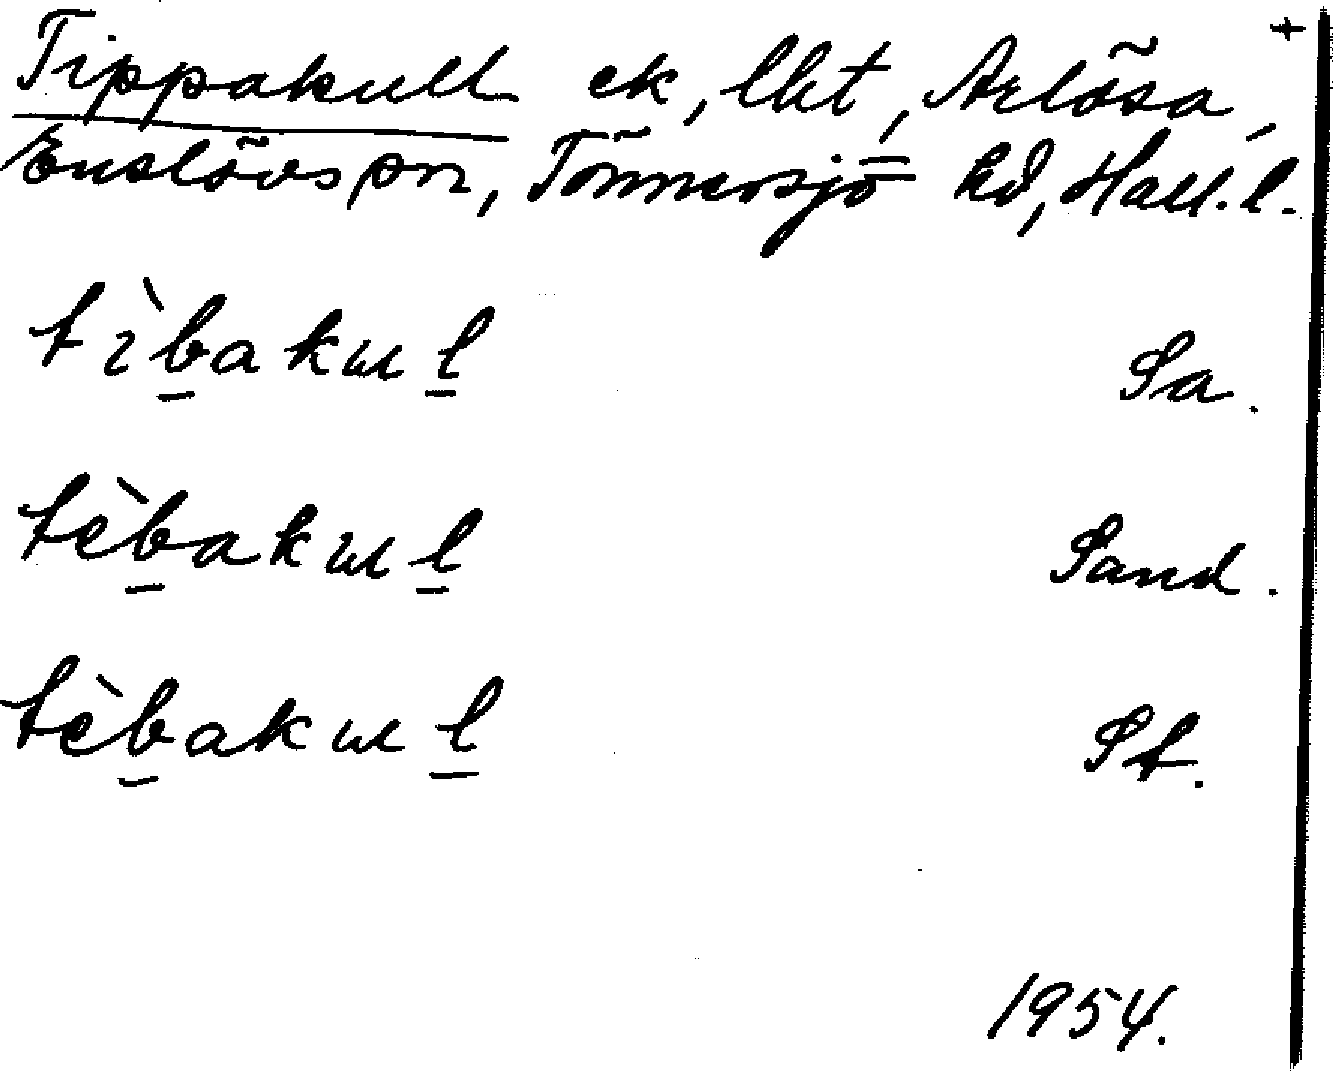 +
Tippakull ek, lht, Arlösa,
Enslövs sn, Tönnersjö hd, Hall. l.
tìb̲akul̲ Sa.
tèb̲akul̲ Sand.
tèb̲akul̲ St.
1954.